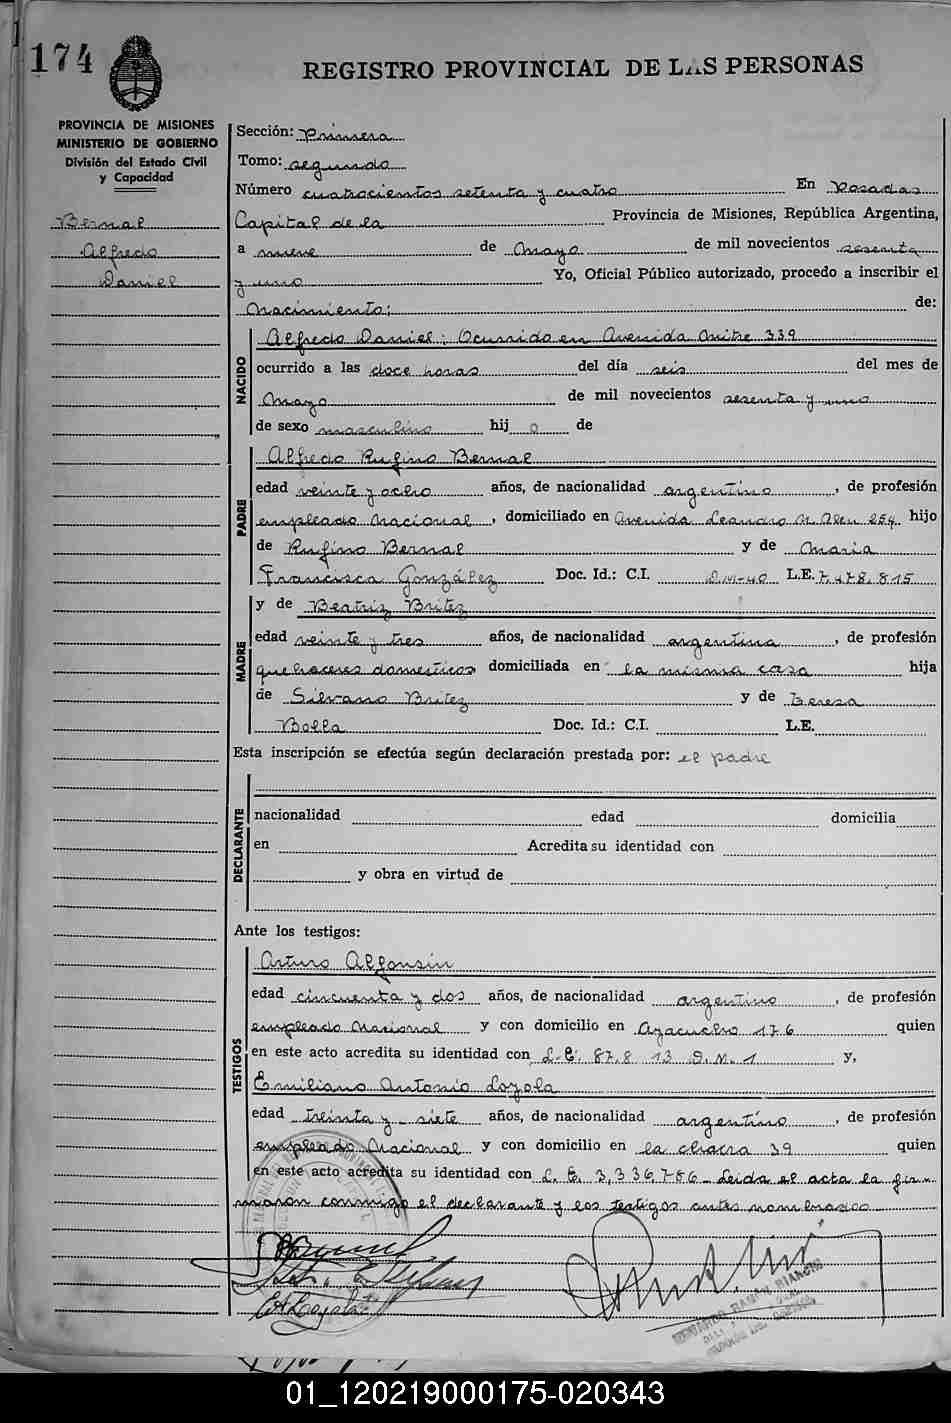 174
REGISTRO PROVINCIAL DE LAS PERSONAS
PROVINCIA DE MISIONES
MINISTERIO DE GOBIERNO
División del Estado Civil
y Capacidad
Bernal
Alfredo
Daniel
Sección: Primera
Tomo: segundo
Número cuatrocientos setenta y cuatro En Posadas
Capital de la Provincia de Misiones, República Argentina,
a nueve de Mayo de mil novecientos sesenta
y uno Yo, Oficial Público autorizado, procedo a inscribir el
Nacimiento: de:
NACIDO
Alfredo Daniel: Ocurrido en Avenida Mitre 339
ocurrido a las doce horas del día seis del mes de
Mayo de mil novecientos sesenta y uno
de sexo masculino hij o de
PADRE
Alfredo Rufino Bernal
edad veinte y ocho años, de nacionalidad argentino, de profesión
empleado Nacional, domiciliado en Avenida Leandro N. Alem 254 hijo
de Rufino Bernal y de Maria
Francisca González Doc. Id.: C.I. D.M-40 L.E. 7.478.815
MADRE
y de Beatriz Britez
edad veinte y tres años, de nacionalidad argentina, de profesión
quehaceres domesticos domiciliada en la misma casa hija
de Silvano Britez y de Teresa
Bolla Doc. Id.: C.I. L.E.
Esta inscripción se efectúa según declaración prestada por: el padre
DECLARANTE
nacionalidad edad domicilia
en Acredita su identidad con
y obra en virtud de
Ante los testigos:
TESTIGOS
Arturo Alfonsín
edad cincuenta y dos años, de nacionalidad argentino, de profesión
empleado Nacional y con domicilio en Ayacucho 176 quien
en este acto acredita su identidad con L.E. 87.8 13 D.M.1 y,
Emiliano Antonio Loyola
edad treinta y siete años, de nacionalidad argentino, de profesión
empleado Nacional y con domicilio en la chacra 39 quien
en este acto acredita su identidad con L.E. 3,336,786 - Leida el acta la fir-
maron conmigo el declarante y los testigos antes nombrados
01_120219000175-020343